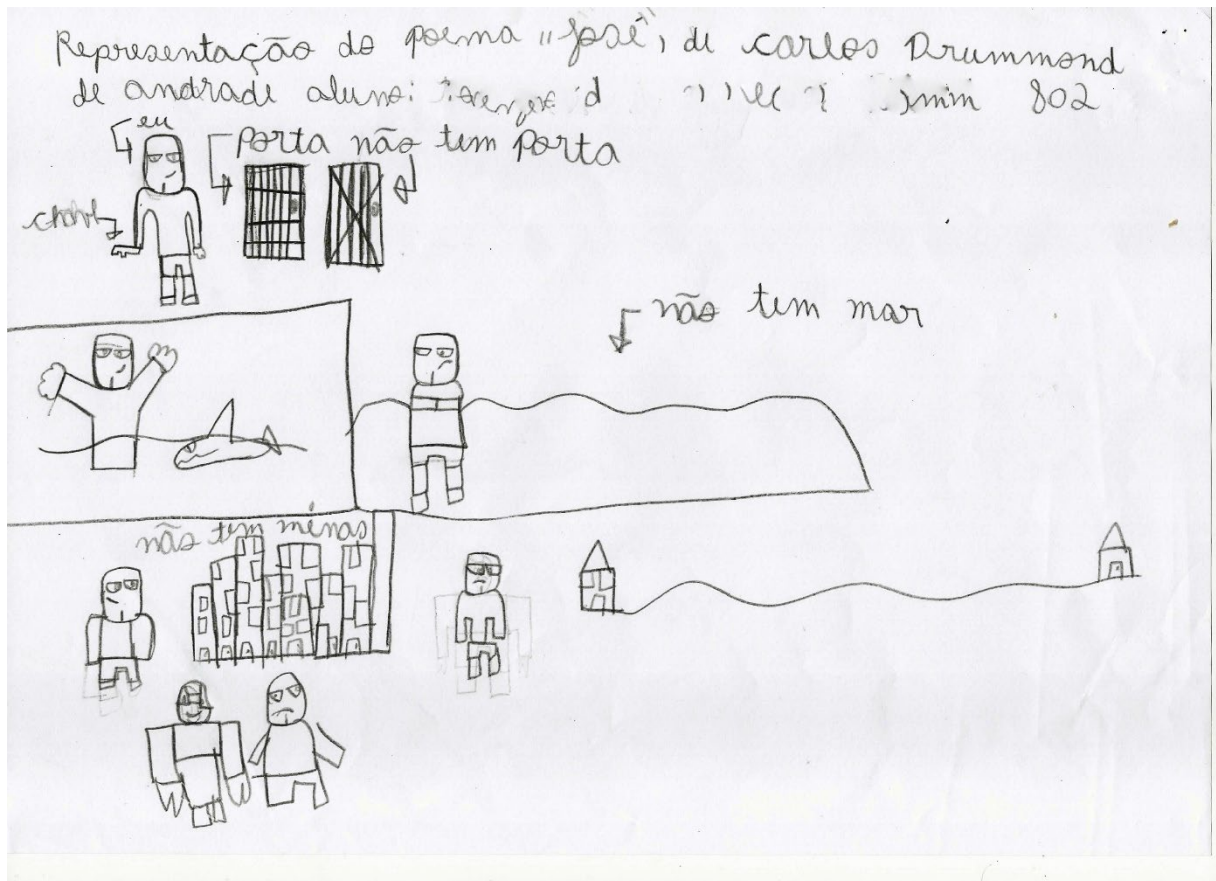 Representação do poema "José", de Carlos Drummond
de andrade aluno: 802
eu
porta não tem porta
chave
não tem mar
não tem minas